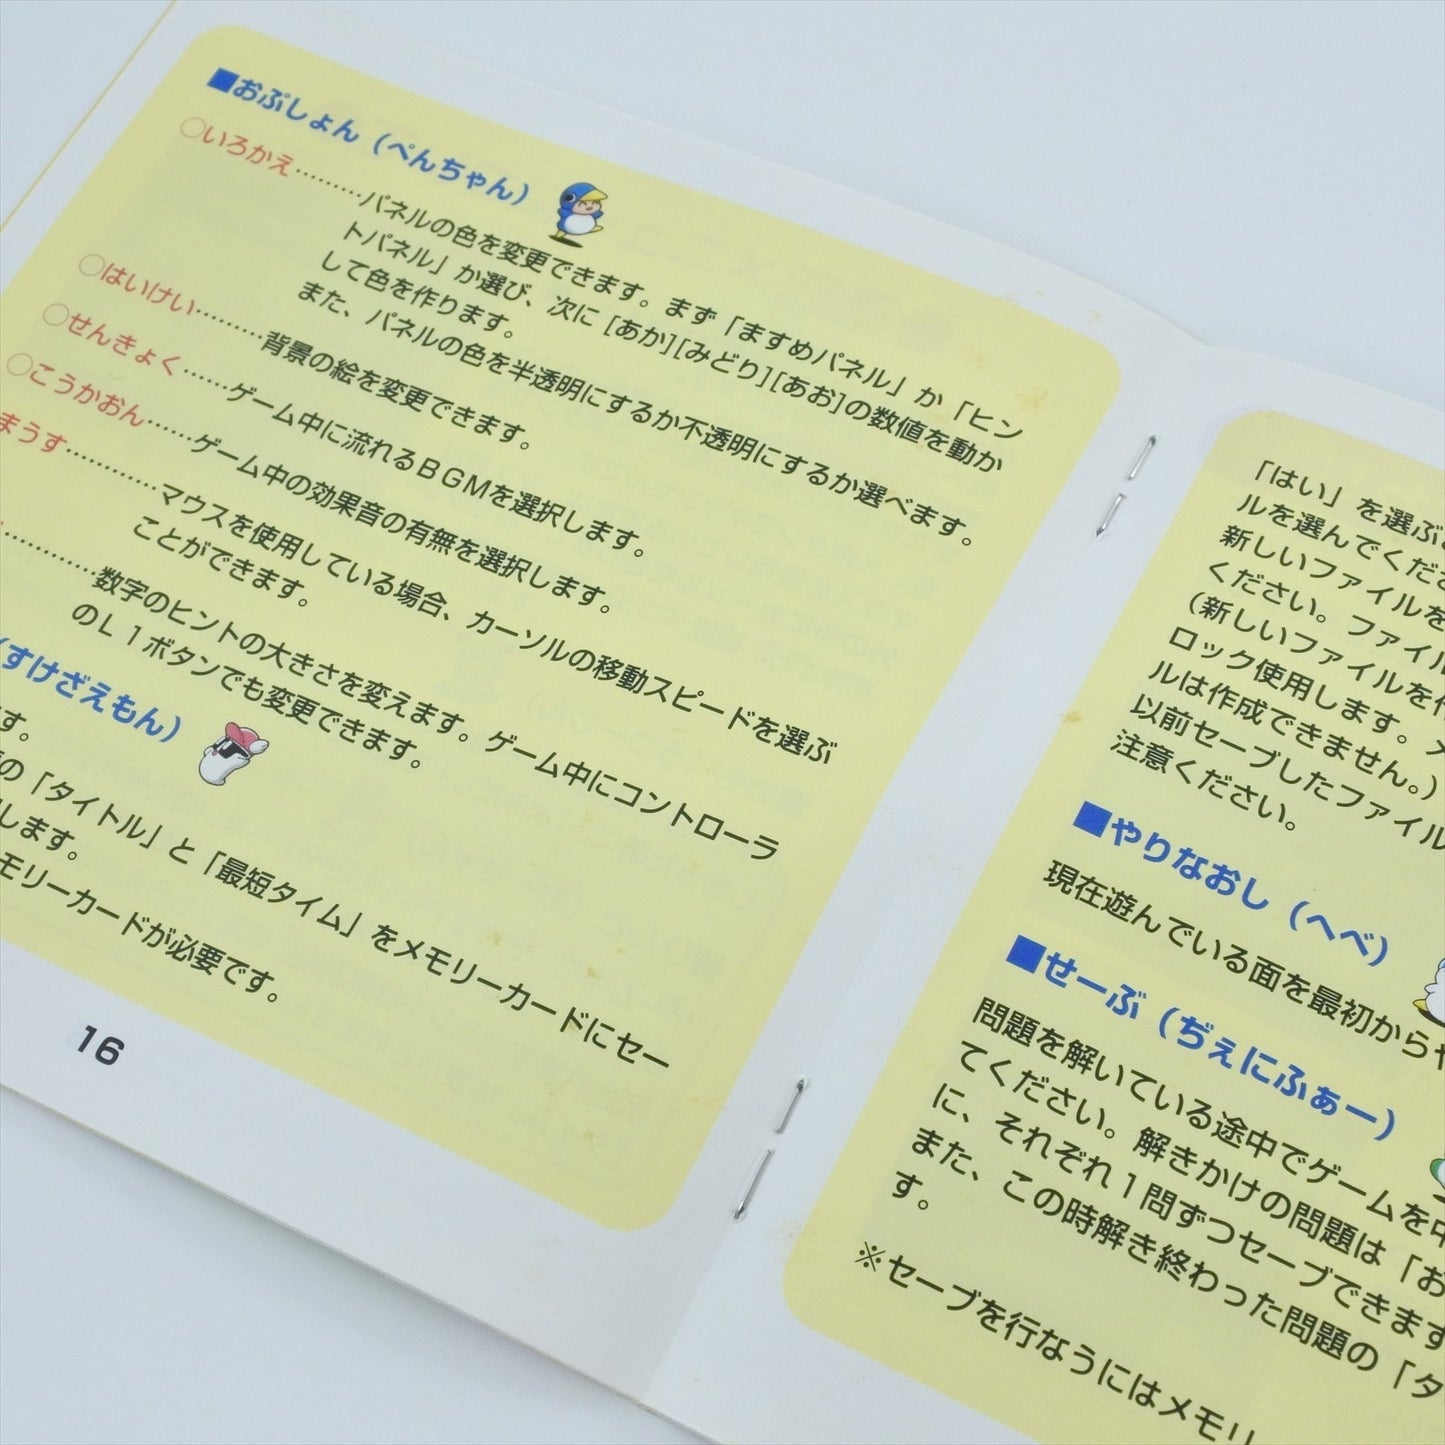 ■おぷしょん（ぺんちゃん）
○いろかえ………パネルの色を変更できます。まず「ますめパネル」か「ヒン
トパネル」か選び、次に[あか][みどり][あお]の数値を動か
して色を作ります。
また、パネルの色を半透明にするか不透明にするか選べます。
○はいけい………背景の絵を変更できます。
○せんきょく……ゲーム中に流れるＢＧＭを選択します。
○こうかおん……ゲーム中の効果音の有無を選択します。
まうす…………マウスを使用している場合、カーソルの移動スピードを選ぶ
ことができます。
…………数字のヒントの大きさを変えます。ゲーム中にコントローラ
のＬ１ボタンでも変更できます。
（すけざえもん）
す。
の「タイトル」と「最短タイム」をメモリーカードにセー
します。
モリーカードが必要です。
16
「はい」を選ぶ
ルを選んでくださ
新しいファイルを
ください。ファイル
（新しいファイルを作
ロック使用します。メ
ルは作成できません。）
以前セーブしたファイル
注意ください。
■やりなおし（へべ）
現在遊んでいる面を最初からや
■せーぶ（ぢぇにふぁー）
問題を解いている途中でゲームを中
てください。解きかけの問題は「お
に、それぞれ１問ずつセーブできます
また、この時解き終わった問題の「タ
す。
※セーブを行なうにはメモリ